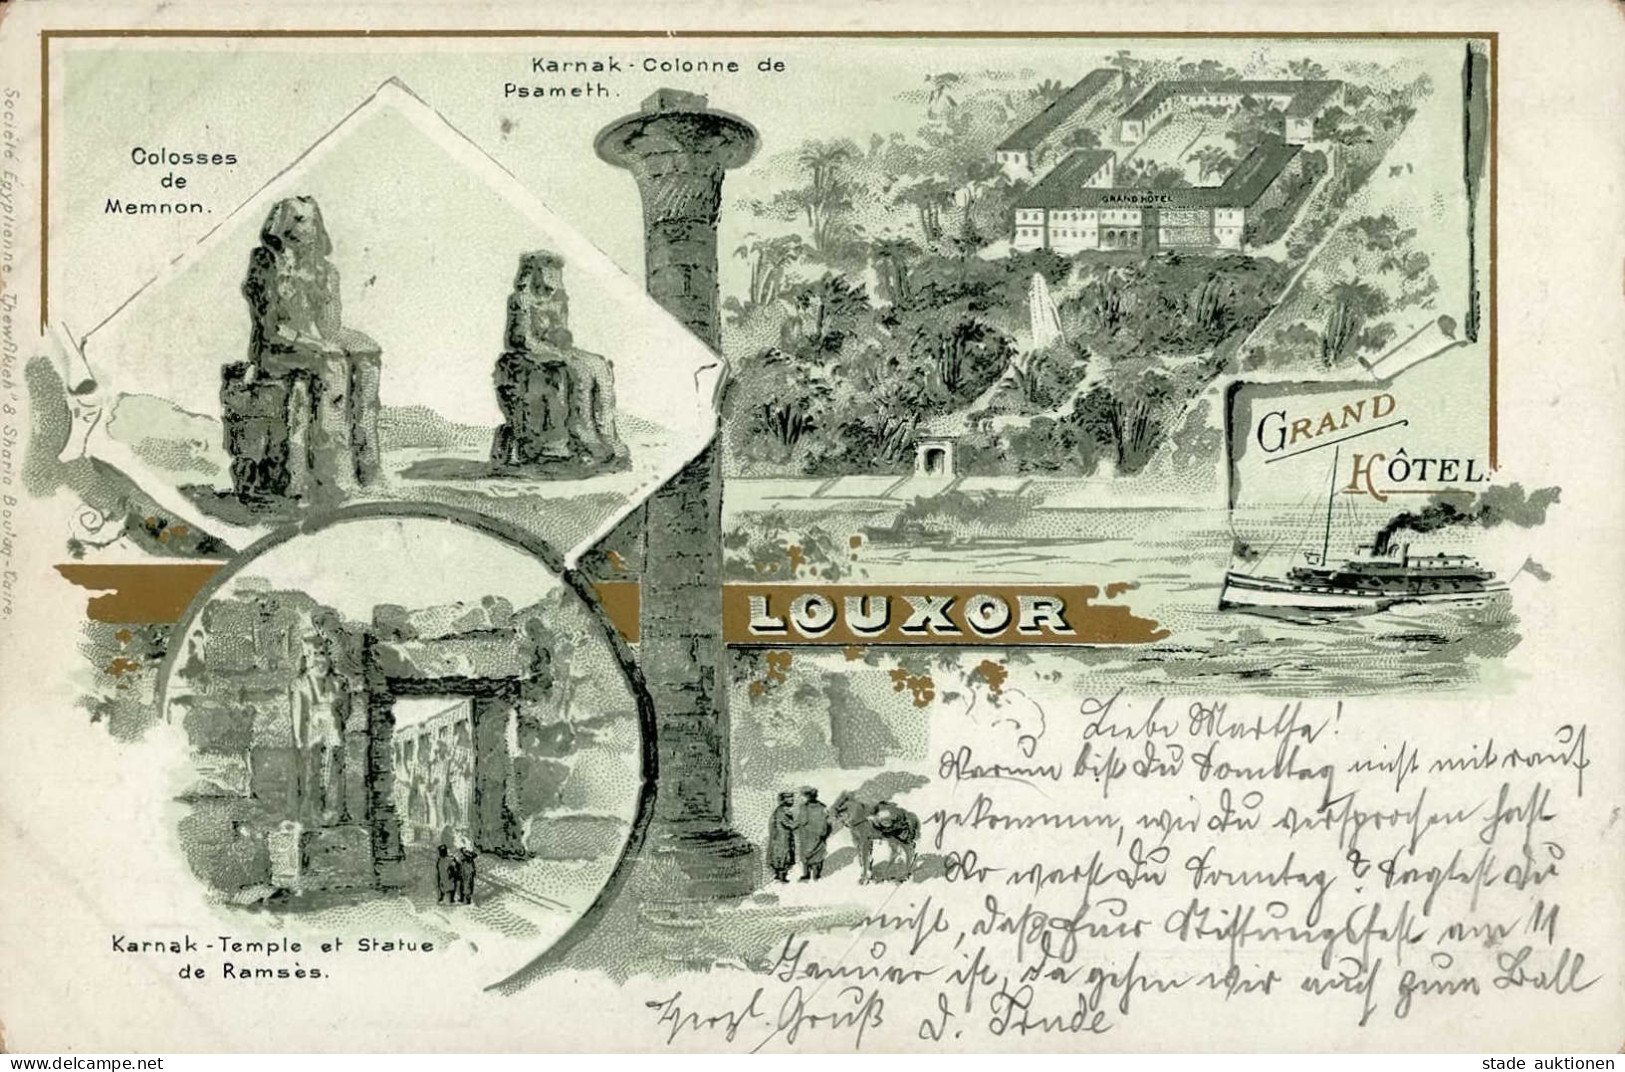 Karnak - Colonne de
Psameth.
Colosses
de
Memnon.
GRAND HÔTEL
GRAND
HÔTEL.
LOUXOR
Karnak - Temple et Statue
de Ramsès.
Société Égyptienne „Thewfikieh" 8 Sharia Boulaq-Caire.
Liebe Martha!
Warum bist Du Sonntag nicht mit rauf
gekommen, wie Du versprochen hast
Wo warst Du Sonntag? Sagtest Du
nicht, daß Euer Stiftungsfest am 11
Januar ist, da gehen wir auch zum Ball
Herzl. Gruß D. Trude
stade auktionen
www.delcampe.net